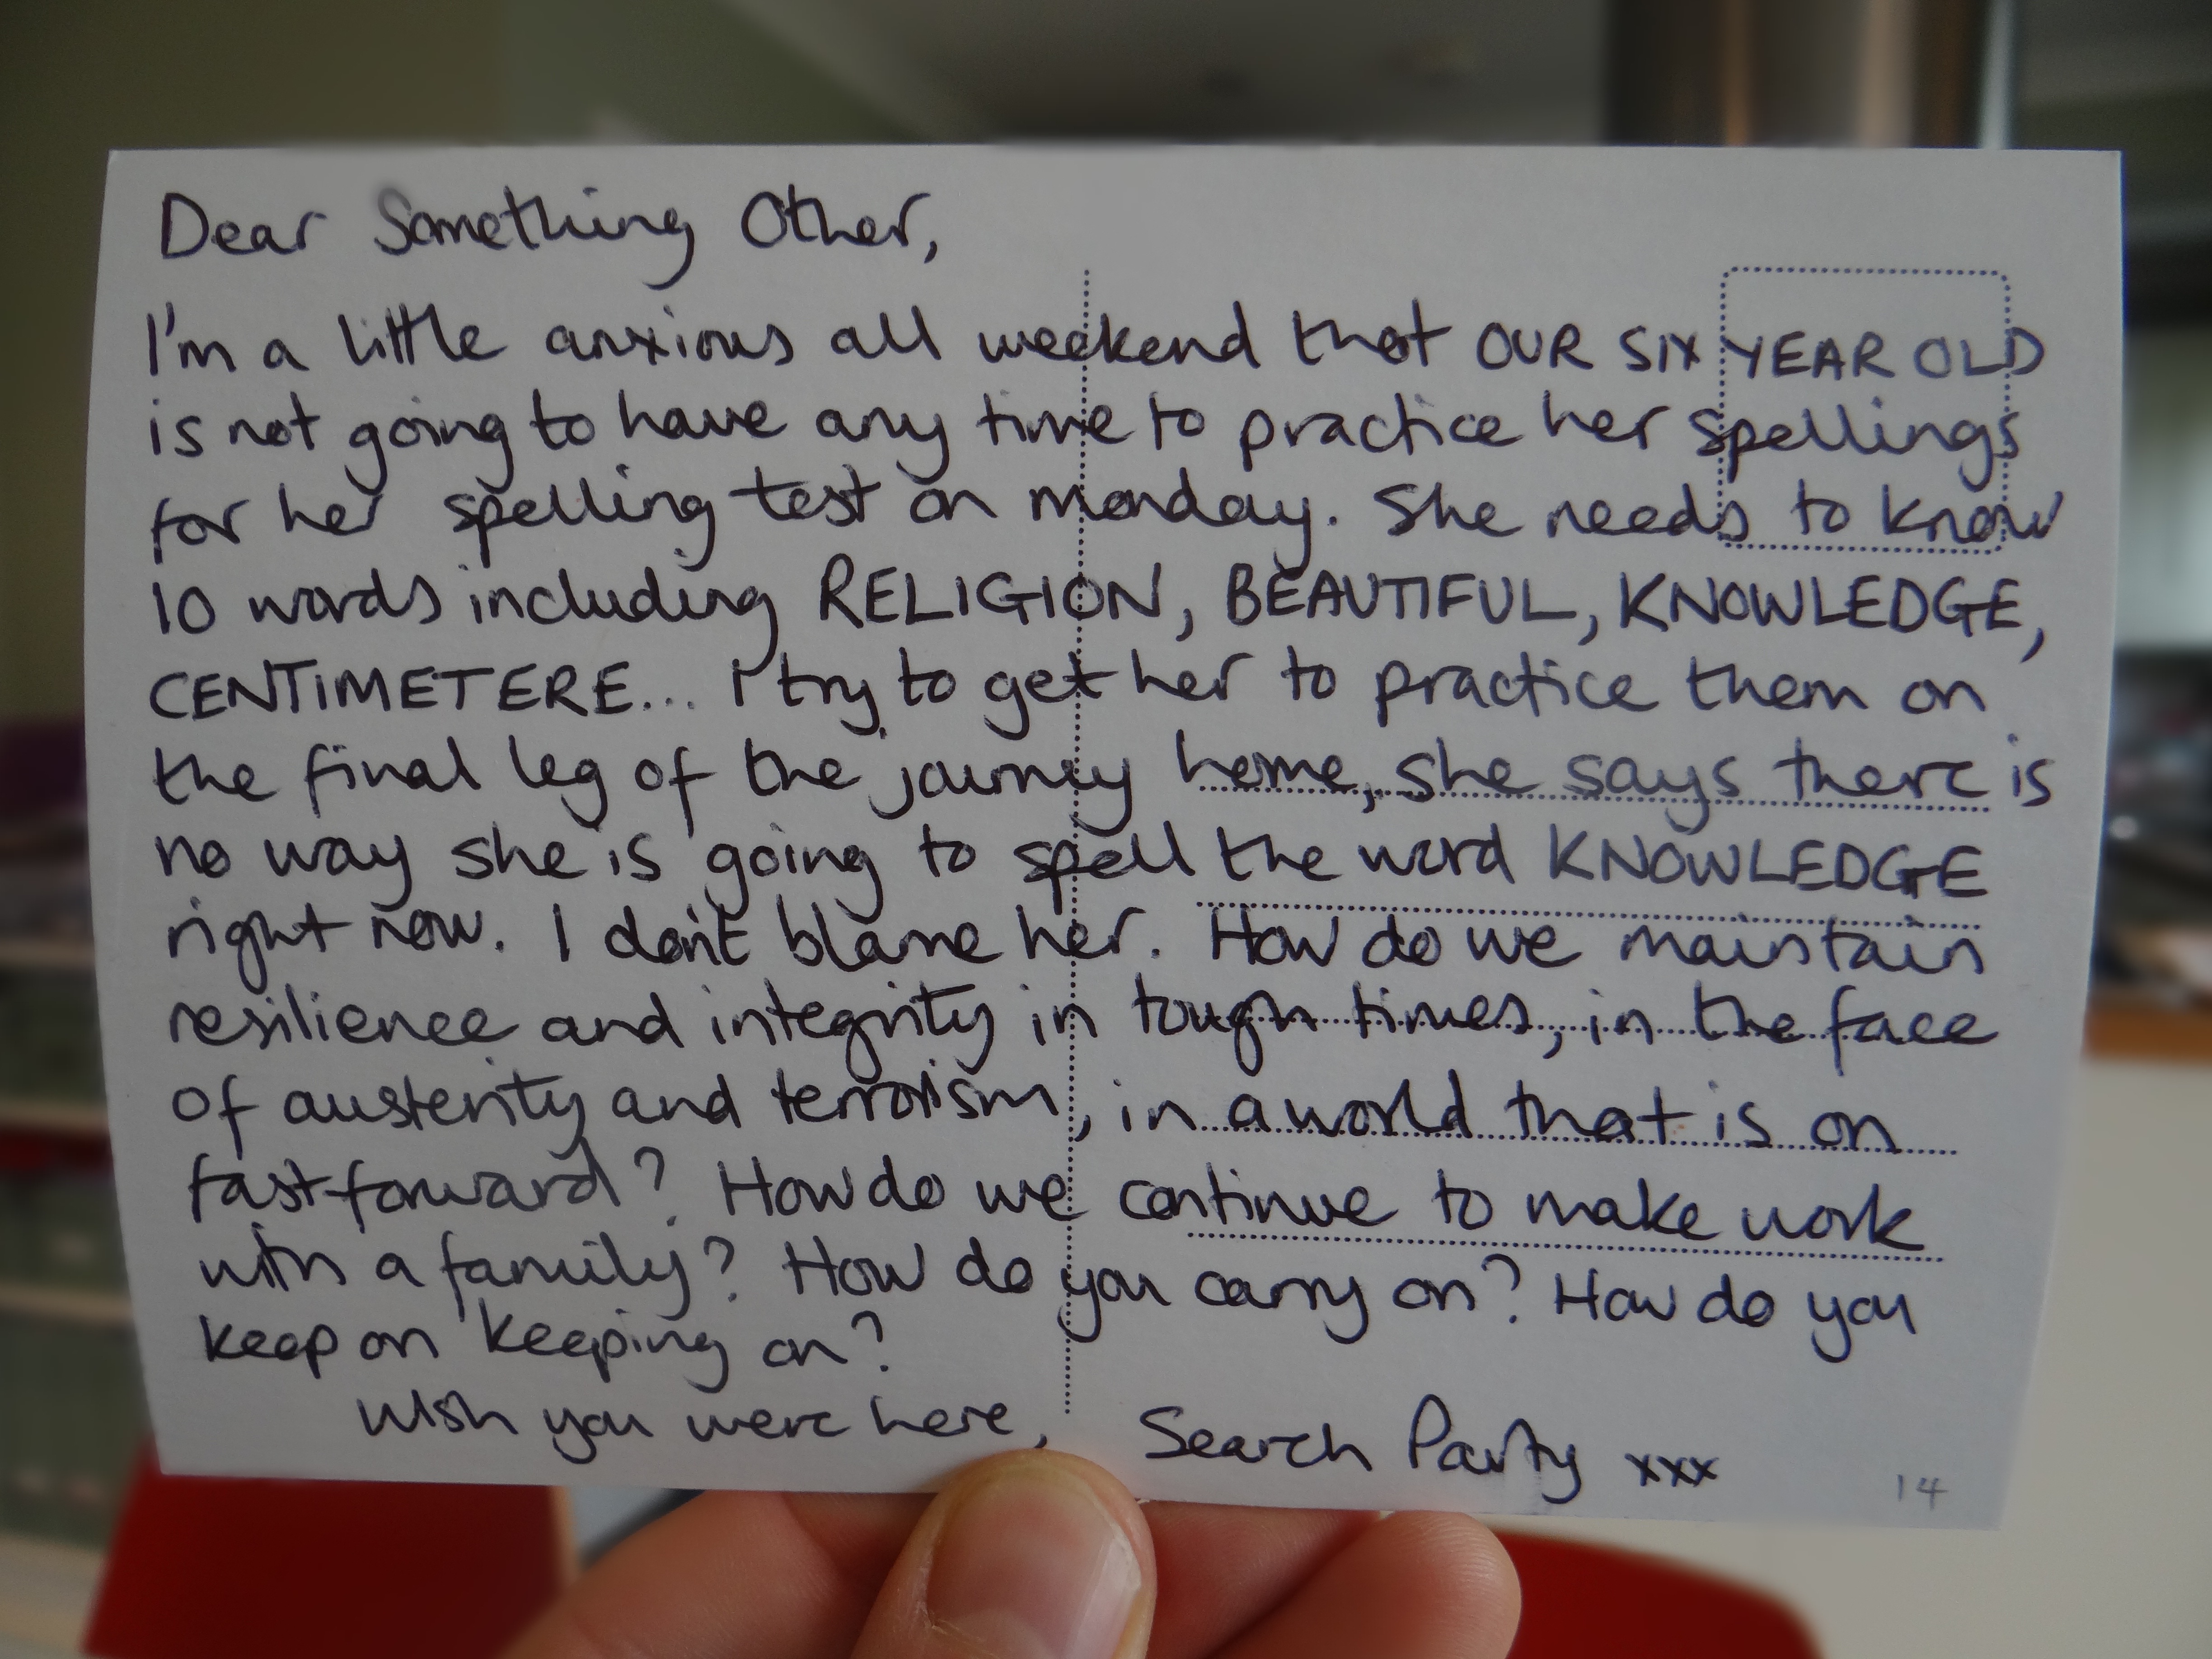 Dear Something Other,
I'm a little anxious all weekend that OUR SIX YEAR OLD
is not going to have any time to practice her spellings
for her spelling test on monday. She needs to know
10 words including RELIGION, BEAUTIFUL, KNOWLEDGE,
CENTIMETERE... I try to get her to practice them on
the final leg of the journey home, she says there is
no way she is going to spell the word KNOWLEDGE
right now. I don't blame her. How do we maintain
resilience and integrity in tough times, in the face
of austerity and terrorism, in a world that is on
fast-forward? How do we continue to make work
with a family? How do you carry on? How do you
keep on keeping on?
Wish you were here, Search Party xxx
14